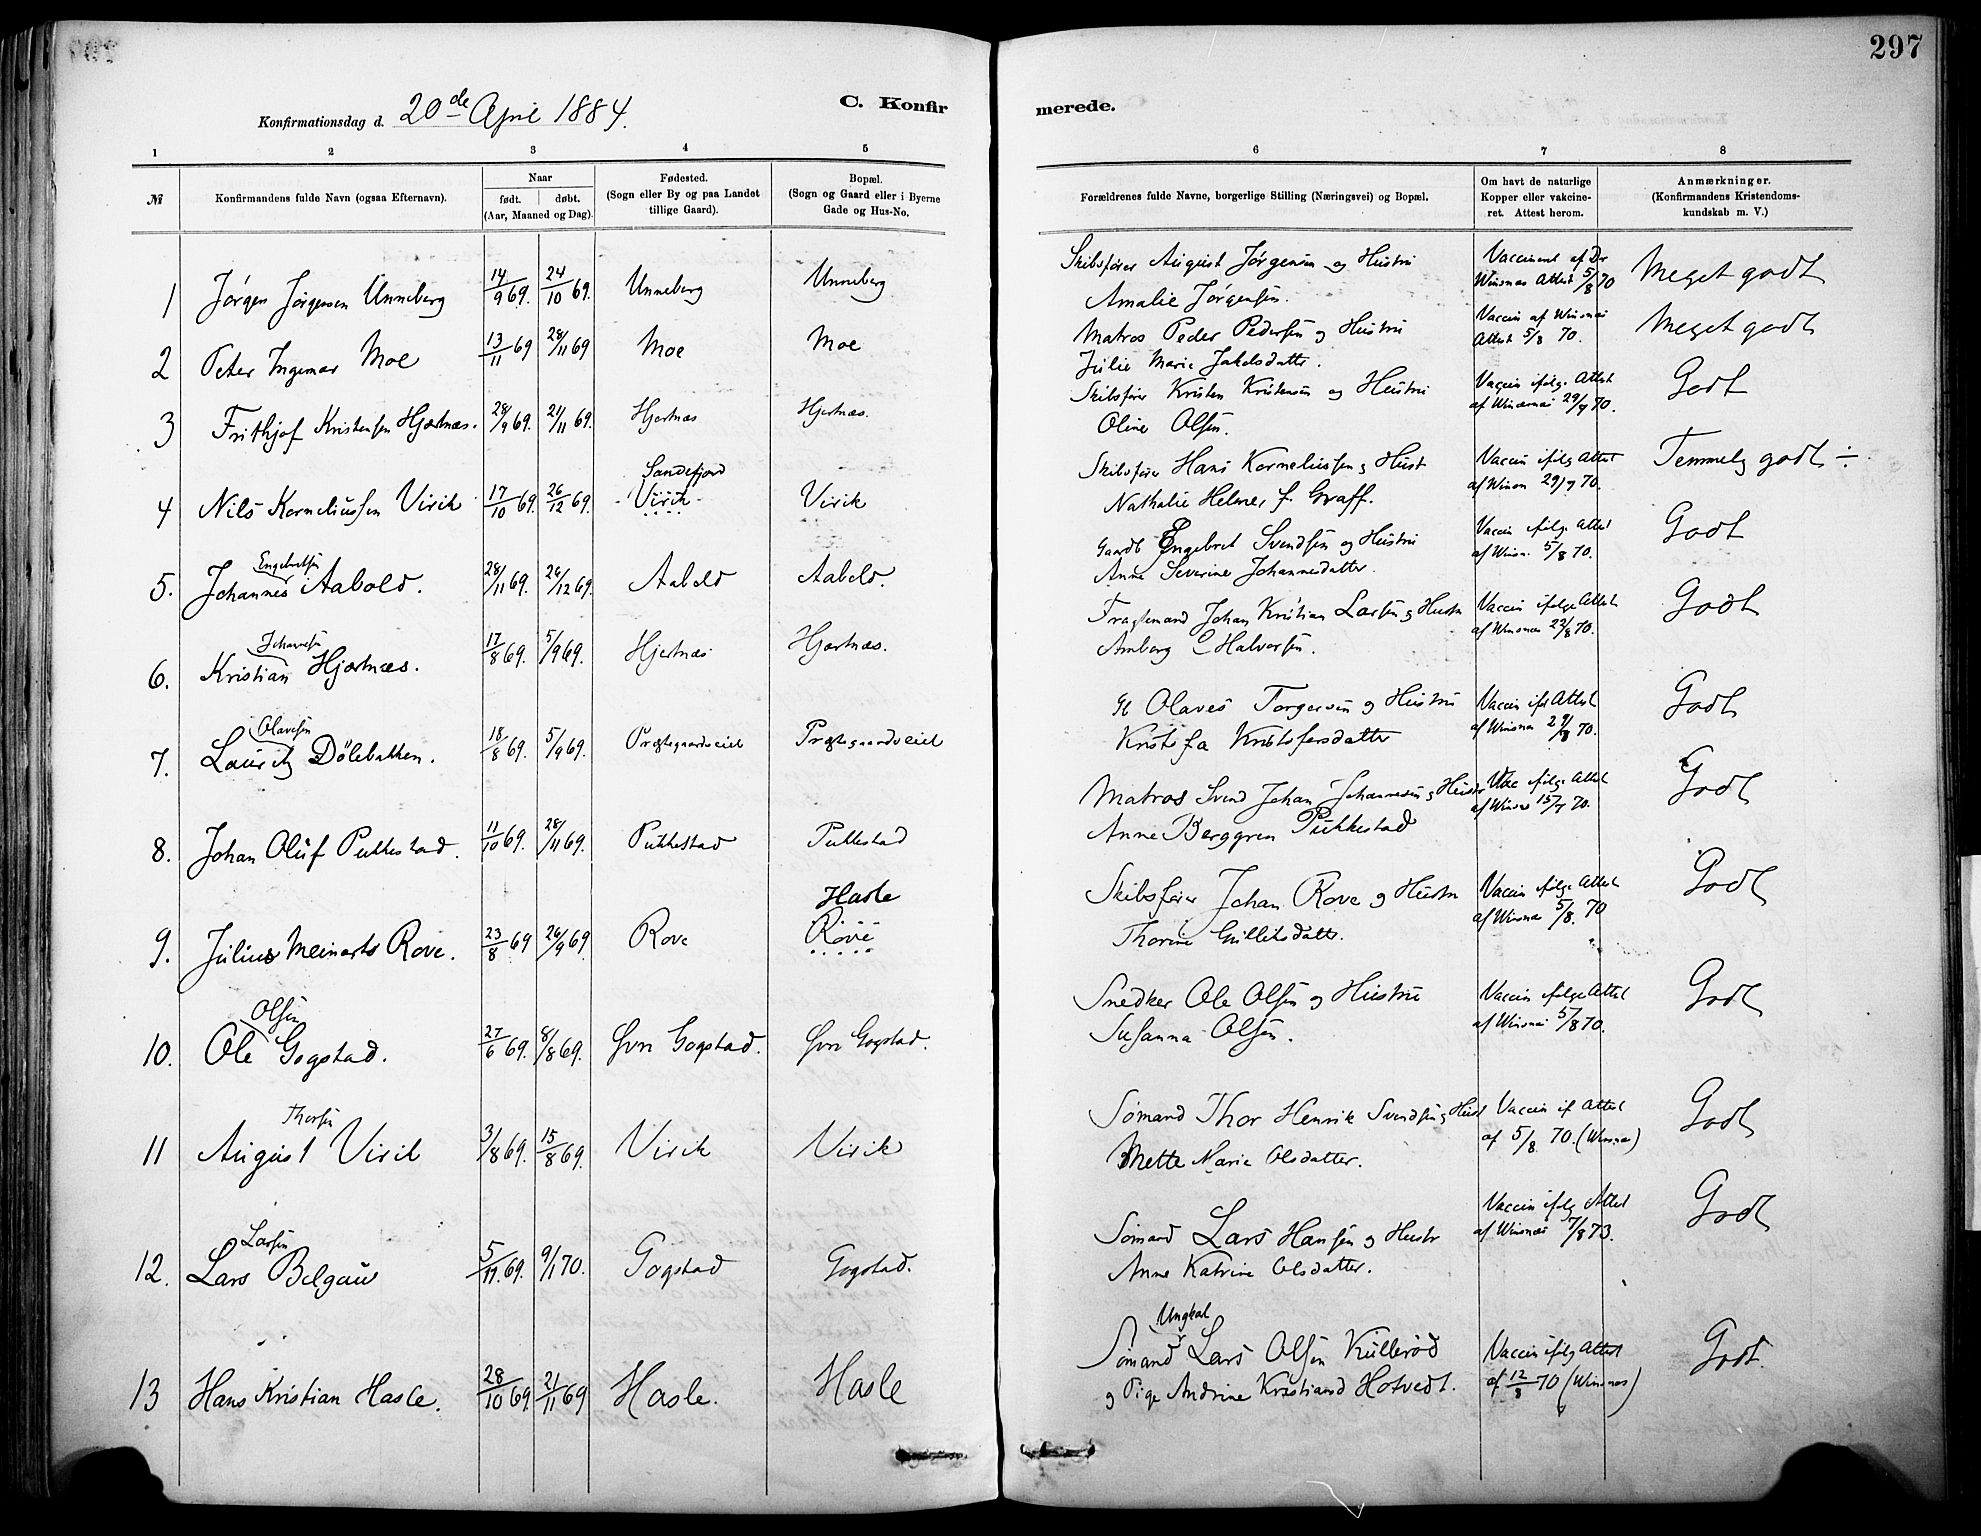 297
C. Konfirmerede.
Konfirmationsdag d. 20de April 1884.
1 2 3 4 5 6 7 8
№ Konfirmandens fulde Navn (ogsaa Efternavn). Naar født. døbt. (Aar, Maaned og Dag). Fødested. (Sogn eller By og paa Landet tillige Gaard). Bopæl. (Sogn og Gaard eller i Byerne Gade og Hus-No. Forældrenes fulde Navne, borgerlige Stilling (Næringsvei) og Bopæl. Om havt de naturlige Kopper eller vakcineret. Attest herom. Anmærkninger. (Konfirmandens Kristendomskundskab m. V.)
1 Jørgen Jørgensen Unneberg 14/9 69. 24/10 69. Unneberg Unneberg Skibsfører August Jørgensen og Hustru Vaccineret af Dr Meget godt
Amalie Jørgensen. Winsnæs Attest 5/8 70
2 Peter Ingemar Moe 13/11 69 28/11 69 Moe Moe Matros Peder Pedersen og Hustru Vaccin af Winsnæs Meget godt
Julie Marie Jakobsdatter. Attest 5/8 70.
3 Frithjof Kristensen Hjertnæs. 28/9 69. 21/11 69. Hjertnæs Hjertnæs. Skibsfører Kristen Kristensen og Hustru Vaccin ifølge Attest Godt
Oline Olsen. af Winsnæs 29/7 70.
4 Nils Korneliussen Virik 17/10 69. 26/12 69. Sandefjord Virik Virik Skibsfører Hans Korneliussen og Hust Vaccin ifølg Attest Temmelig godt ÷
Nathalie Helmer f. Graff. af Winsn 29/7 70.
5. Johannes Engebretsen Aabold. 28/11 69. 26/12 69. Aabold Aabold. Gaardb Engebret Svendsen og Hustru Vaccin ifølge Attest Godt
Anne Severine Johannesdatter. af Winsn. 5/8 70.
6. Kristian Johansen Hjertnæs. 17/8 69. 5/9 69. Hjertnæs Hjertnæs. Fragtemand Johan Kristian Larsen og Hustru Vaccin ifølge Attest Godt
Amborg E Halvorsen. af Winsnæs 22/8 70.
7. Lauritz Olavesen Dölebakken. 18/8 69. 5/9 69. Præstegaardseiet Præstegaardseiet Olaves Torgersen og Hustru Vaccin iføl Attest Godt
Kristofa Kristofersdatter af Winsnæs 29/8 70.
8. Johan Oluf Pukkestad. 11/10 69. 28/11 69. Pukkestad Pukkestad Matros Svend Johan Johannesen og Hustru Vac ifølge Attest Godt
Anne Berggren Pukkestad af Winsnæs 15/7 70.
9. Julius Meinerts Rove. 23/8 69 26/9 69 Rove Hasle Rove Skibsfører Johan Rove og Hustru Vaccin ifølge Attest Godt
Thorine Gullitsdatter. af Winsnæs 5/8. 70
10. Ole Olsen Gogstad. 27/6 69. 8/8 69. Øvre Gogstad. Øvre Gogstad. Snedker Ole Olsen og Hustru Vaccin ifølge Attest Godt
Susanna Olsen. af Winsnæs 5/8 70.
11 August Thorsen Virik 3/8 69. 15/8 69. Virik Virik Sømand Thor Henrik Svendsen og Hust Vaccin if Attest Godt
Mette Marie Olsdatter. af 5/8 70. (Winsnæs)
12. Lars Larsen Belgau 5/11 69. 9/1 70. Gogstad Gogstad. Sømand Lars Hansen og Hustr Vaccin ifølg Attest Godt
Anne Katrine Olsdatter. af Winsnæs 7/8 73.
13 Hans Kristian Hasle. 28/10 69. 21/11 69 Hasle. Hasle Sømand Ungkarl Lars Olsen Kullerød Vaccin ifølg Attest Godt.
og Pige Andrine Kristiansd Hotvedt. af 12/8 70 (Winsnæs)